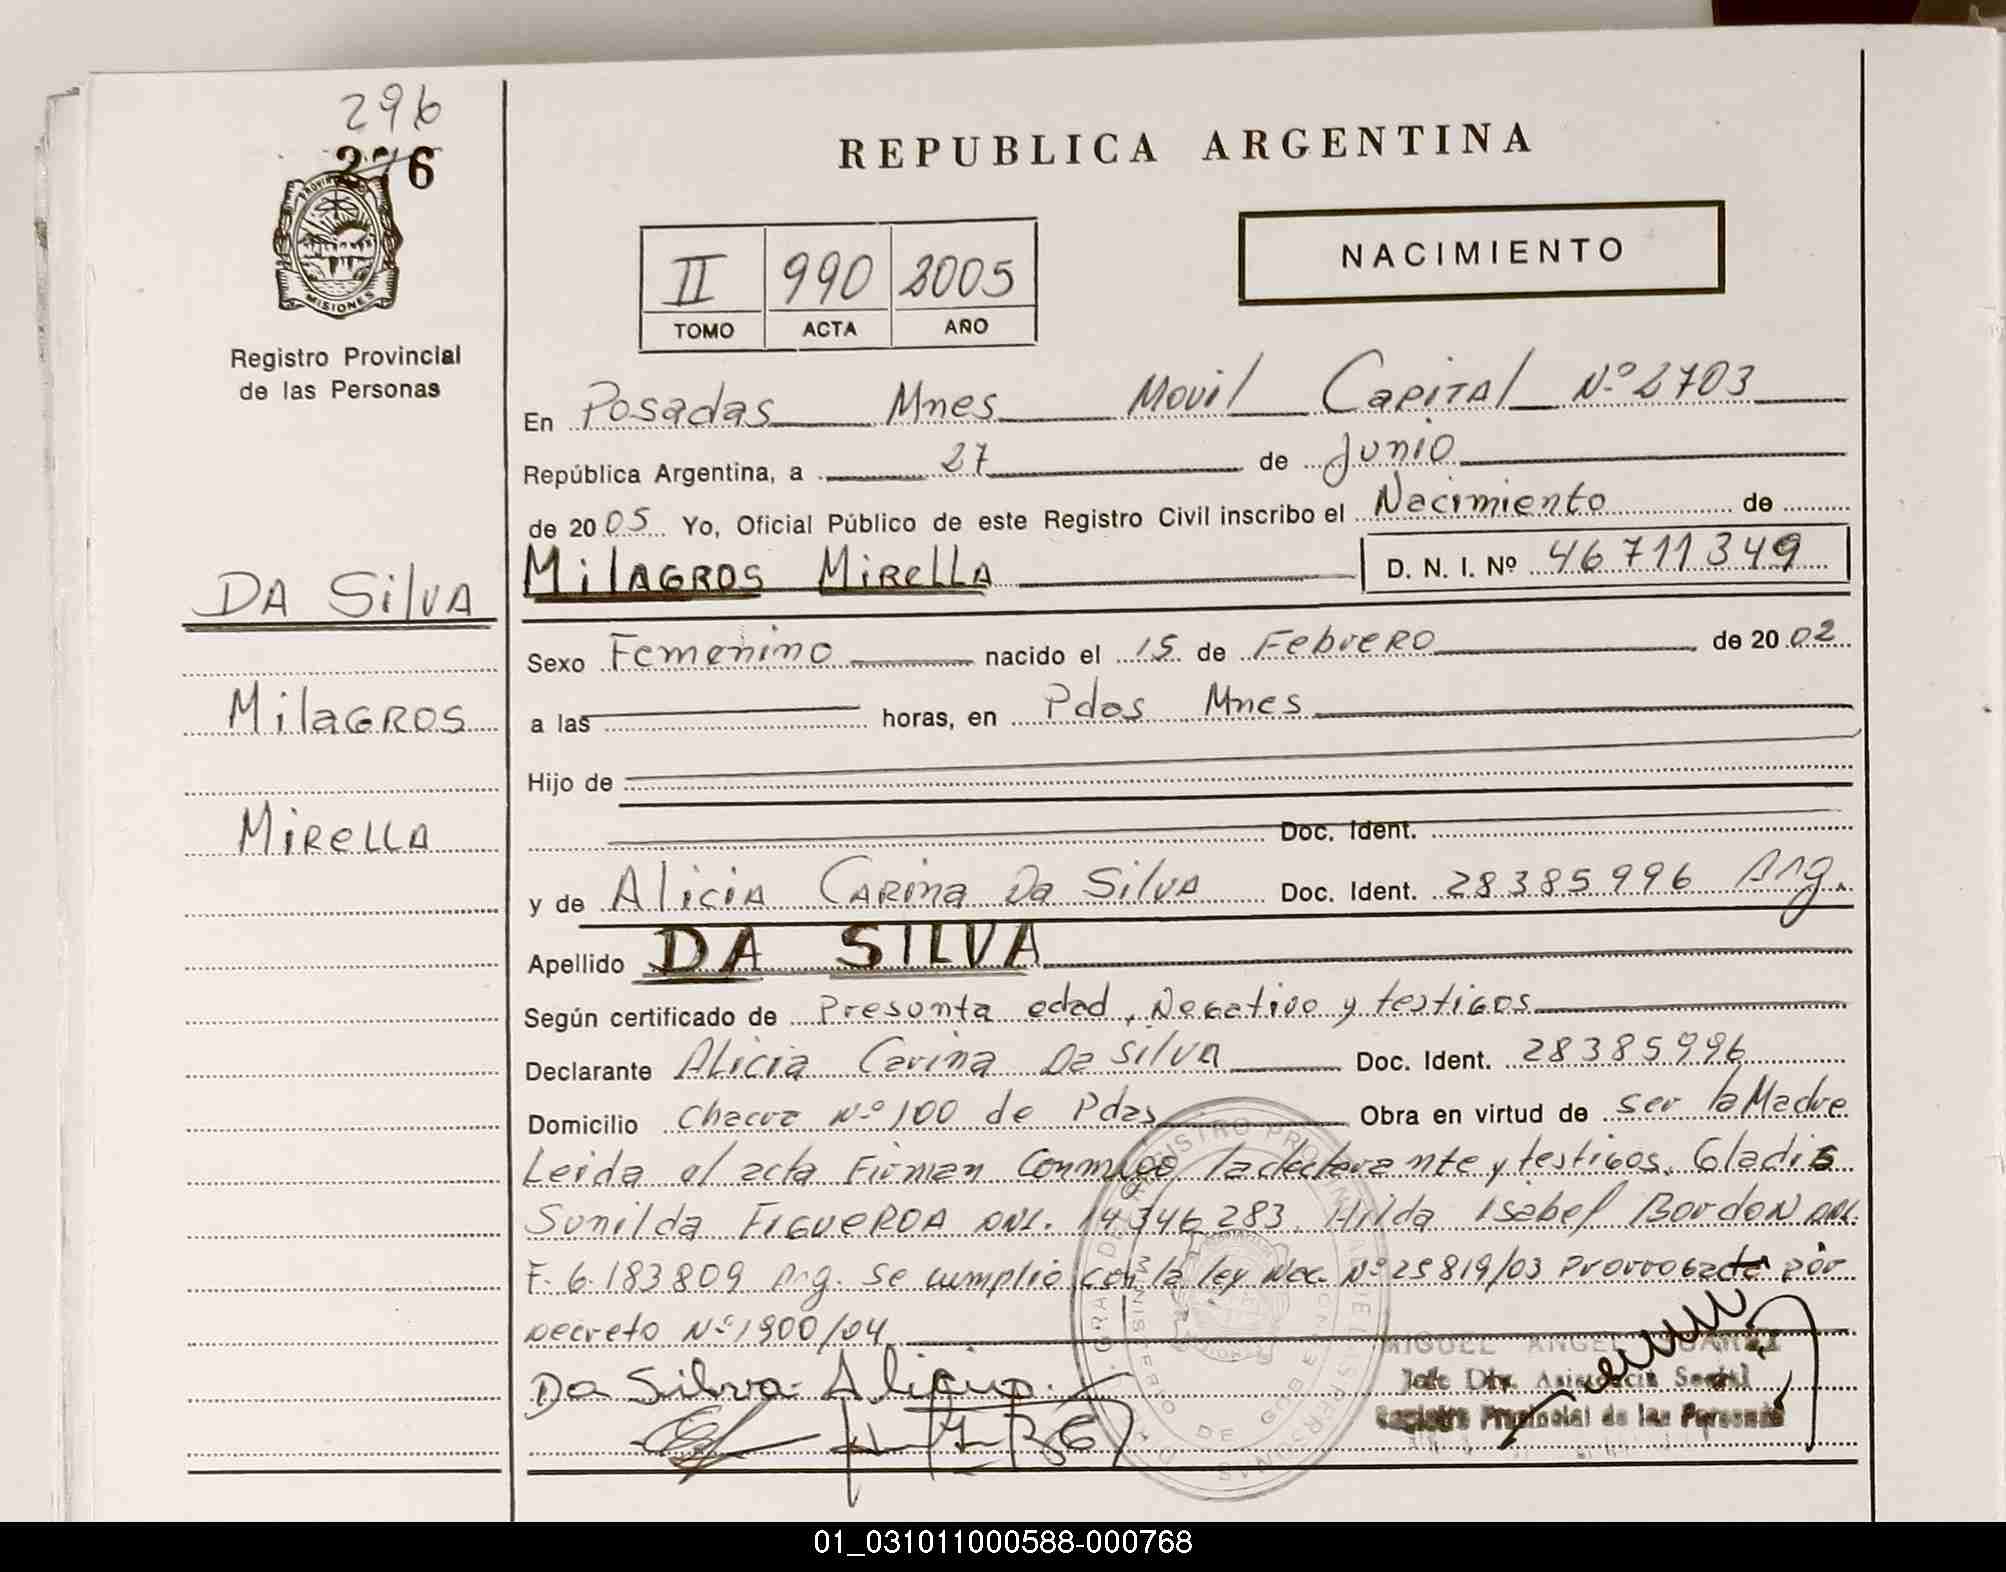 296
276
PROVINCIA
MISIONES
Registro Provincial
de las Personas
DA SilVA
MilAGROS
MiRellA
REPUBLICA ARGENTINA
II 990 2005
TOMO ACTA AÑO
NACIMIENTO
En Posadas Mnes Movil Capital Nº 2703
República Argentina, a 27 de Junio
de 2005 Yo, Oficial Público de este Registro Civil inscribo el Nacimiento de
MilAGROS MiRellA D. N. I. Nº 46711349
Sexo Femenino nacido el 15 de Febrero de 2002
a las horas, en Pdas Mnes
Hijo de
Doc. Ident.
y de Alicia Carina Da Silva Doc. Ident. 28385996 Arg.
Apellido DA SILVA
Según certificado de Presunta edad, Negativo y testigos
Declarante Alicia Carina Da Silva Doc. Ident. 28385996
Domicilio Chacra Nº 100 de Pdas Obra en virtud de ser la Madre
Leida el acta Firman Conmigo la declarante y testigos. Gladis
Sunilda FIGUEROA DNI. 14346283. Hilda Isabel Bordon DNI.
F. 6.183809 Arg. Se cumplio con la ley Nac. Nº 25819/03 Prorrogada por
Decreto Nº 1900/04
Da Silva Alicia.
MIGUEL ANGEL
Jefe Div. Asistencia Social
Registro Provincial de las Personas
01_031011000588-000768